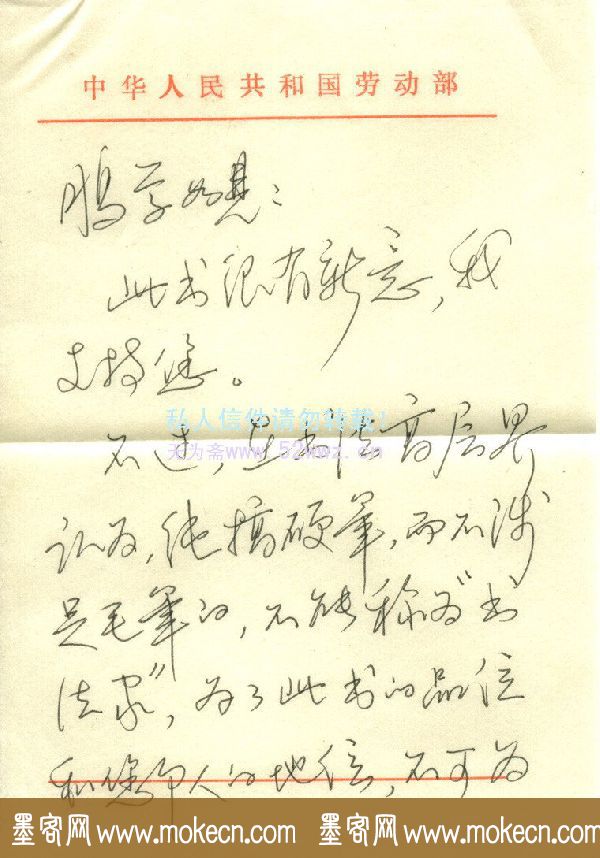 中华人民共和国劳动部
鹏字如晤：
此书很有新意，我
支持您。
私人信件请勿转载！
无为斋www.52kwz.cn
不过，且书法高层界
认为，纯搞硬筆，而不涉
足毛筆的，不能称为"书
法家"，为了此书的品位
和您本人的地位，不可为
墨客网 www.mokecn.com 墨客网 www.mokecn.com